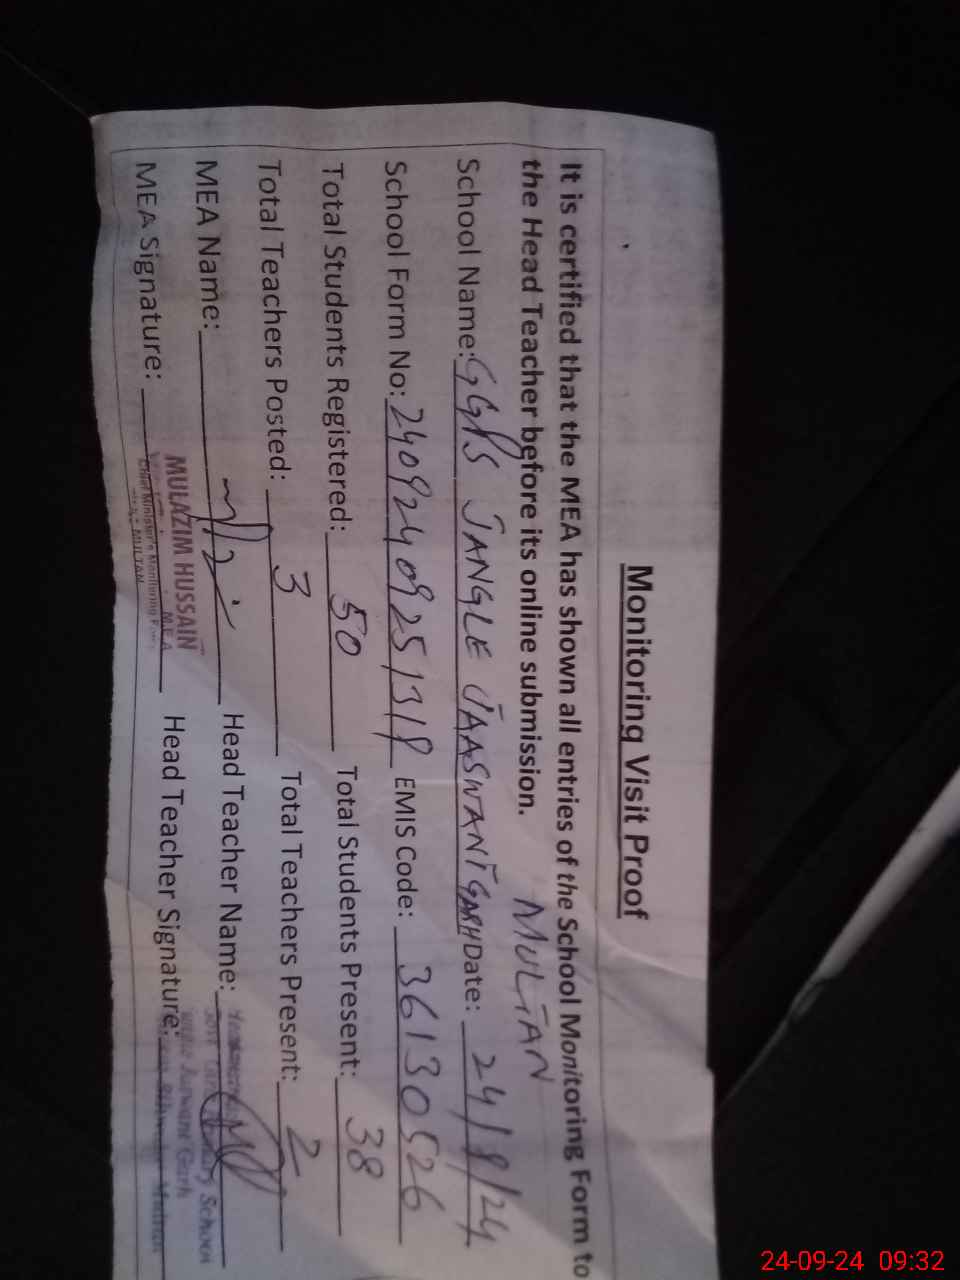 Monitoring Visit Proof
It is certified that the MEA has shown all entries of the School Monitoring Form to
the Head Teacher before its online submission.
MULTAN
School Name: GGPS JANGLE JAASWANT GARH Date: 24/9/24
School Form No: 24092409251318 EMIS Code: 36130526
Total Students Registered: 50 Total Students Present: 38
Total Teachers Posted: 3 Total Teachers Present: 2
MEA Name: Head Teacher Name:
MEA Signature: Head Teacher Signature:
MULAZIM HUSSAIN
M.E.A
Chief Minister's Monitoring Force
MULTAN
School
Jaswant Garh
Multan
24-09-24 09:32